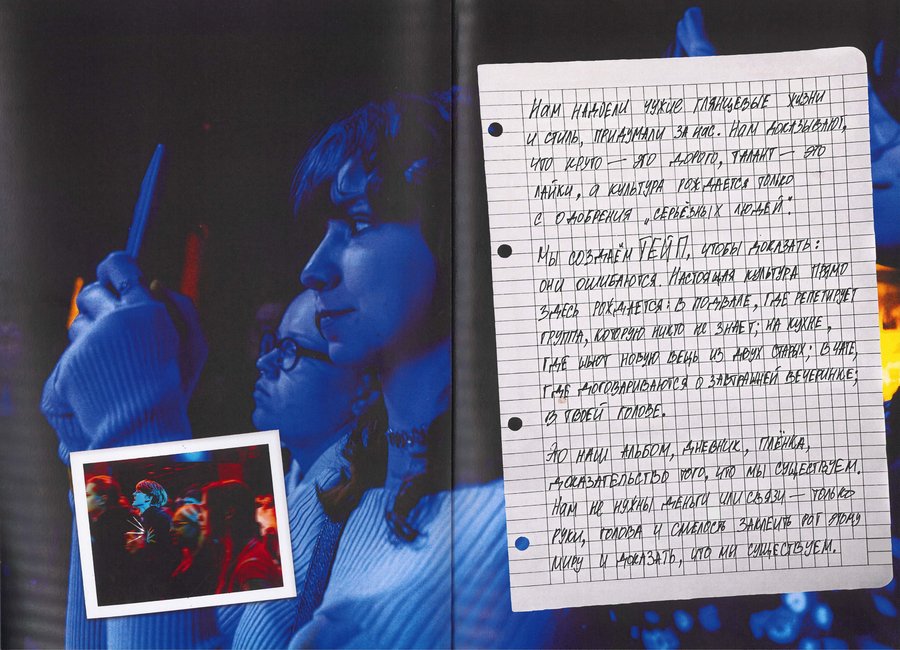 Нам надоели чужие глянцевые жизни
и стиль, придумали за нас. Нам доказывают,
что круто — это дорого, талант — это
лайки, а культура рождается только
с одобрения „серьёзных людей".
Мы создаём ТЕЙП, чтобы доказать:
они ошибаются. Настоящая культура прямо
здесь рождается: в подвале, где репетирует
группа, которую никто не знает; на кухне,
где шьют новую вещь из двух старых; в чате,
где договариваются о завтрашней вечеринке;
в твоей голове.
Это наш альбом, дневник, плёнка,
доказательство того, что мы существуем.
Нам не нужны деньги или связи — только
руки, голова и смелость заклеить рот этому
миру и доказать, что мы существуем.